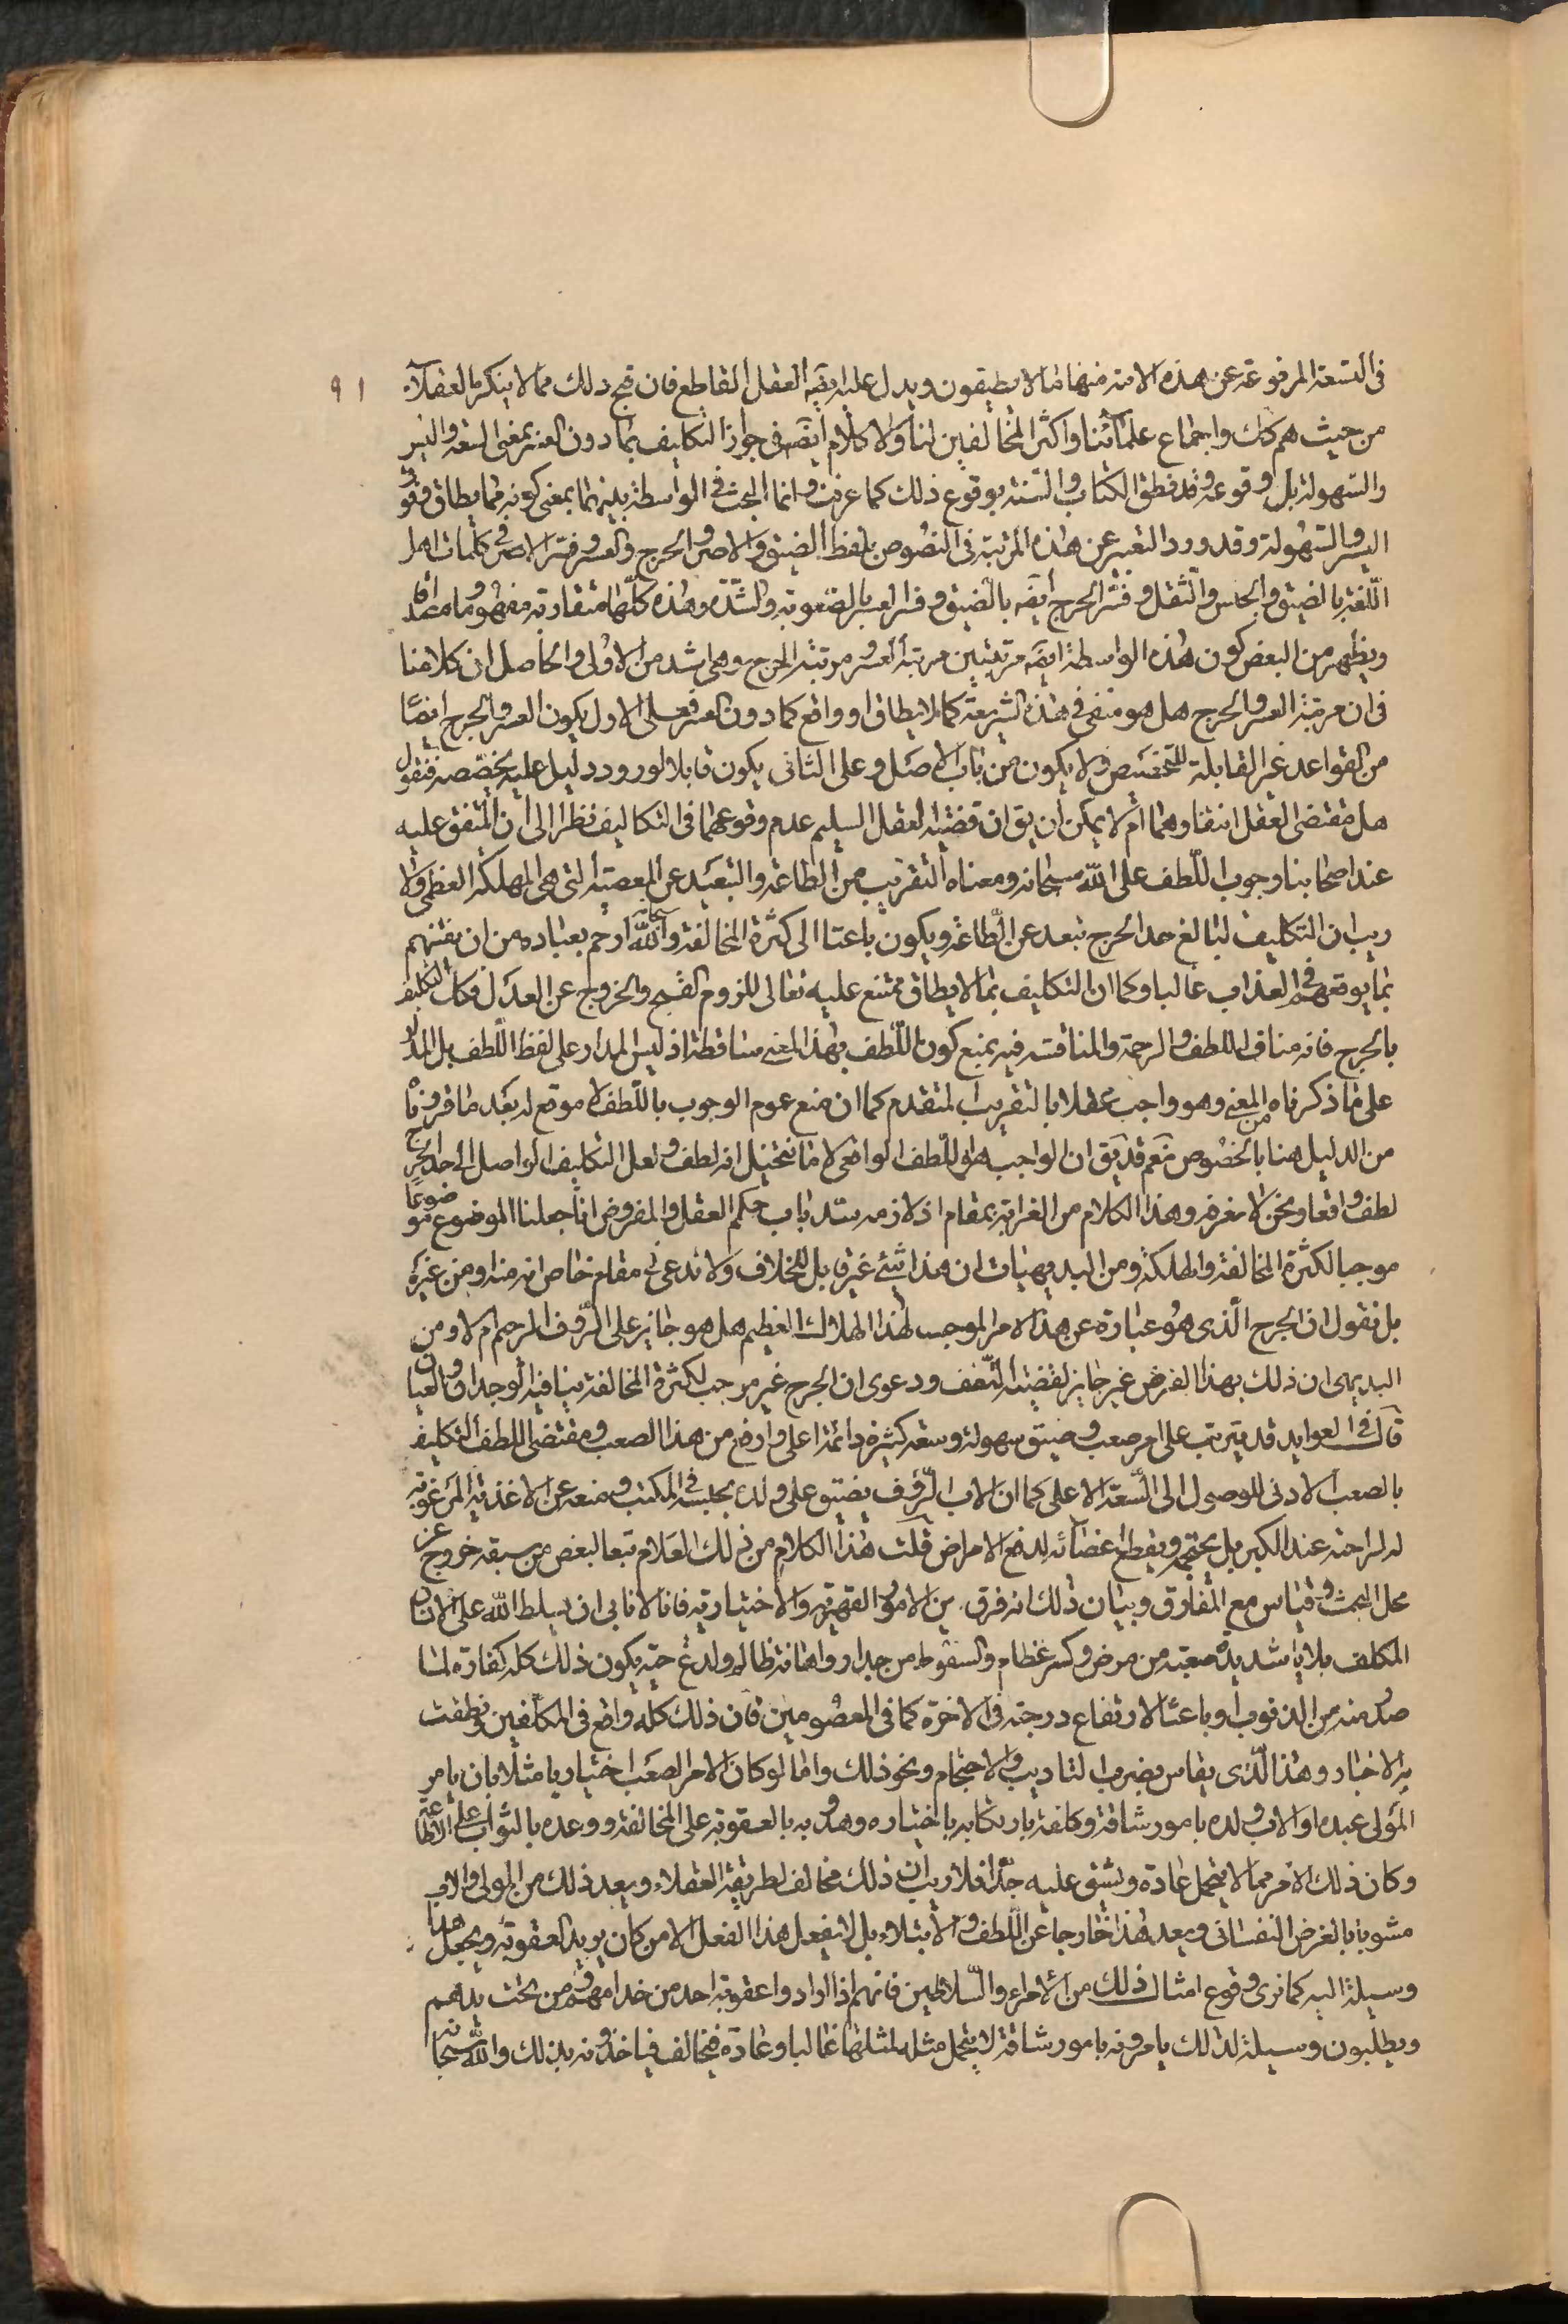 في التسعة المرفوعة عن هذه الامة منها ما لا يطيقون ويدل عليه ايضه العقل القاطع فان قبح ذلك مما لا ينكره العقلاء ٩١
من حيث هم كك واجماع علمائنا واكثر المخالفين لنا ولا كلام ايضه في جواز التكليف بما دون العسر بمعنى السعة واليسر
والسهولة بل وقوعه وقد نطق الكتاب والسنة بوقوع ذلك كما عرفت وانما البحث في الواسطة بينهما بمعنى كونه مما يطاق وفوق
اليسر والسهولة وقد ورد التعبير عن هذه المرتبة في النصوص بلفظ الضيق والاصر والحرج والعسر وفسر الاصر في كلمات اهل
اللغة بالضيق والحبس والثقل وفسر الحرج ايضه بالضيق وفسر العسر بالصعوبة والشدة وهذه كلها متقاربة مفهوما ومصداقا
ويظهر من البعض كون هذه الواسطة ايضه مرتبتين مرتبة العسر ومرتبة الحرج وهي اشد من الاولى والحاصل ان كلامنا
في ان مرتبة العسر والحرج هل هو منفي في هذه الشريعة كما لا يطاق او واقع كما دون العسر فعلى الاول يكون العسر والحرج ايضا
من القواعد غير القابلة للتخصيص ولا يكون من باب الاصل وعلى الثاني يكون قابلا لورود دليل عليه يخصصه فنقول
هل مقتضى العقل انتفاوهما ام لا يمكن ان يق ان قضية العقل السليم عدم وقوعهما في التكاليف نظرا الى ان المتفق عليه
عند اصحابنا وجوب اللطف على الله سبحانه ومعناه التقريب من الطاعة والتبعيد عن المعصية التي هي المهلكة العظمى ولا
ريب ان التكليف البالغ حد الحرج تبعد عن الطاعة ويكون باعثا الى كثرة المخالفة والله سبحانه ارحم بعباده من ان يفتنهم
بما يوقعهم في العذاب غالبا وكما ان التكليف بما لا يطاق ممتنع عليه تعالى للزوم القبح والخروج عن العدل فكك التكليف
بالحرج فانه مناف اللطف والرحمة والمناقشة فيه بمنع كون اللطف بهذا المعنى ساقطة اذ ليس المدار على لفظ اللطف بل المدار
على ما ذكرناه من المعنى وهو واجب عقلا بالتقريب المتقدم كما ان منع عموم الوجوب باللطف لا موقع له بعد ما قررناه
من الدليل هنا بالخصوص نعم قد يق ان الواجب هو اللطف الواقعي لا ما نتخيل انه لطف ولعل التكليف الواصل الى حد الحرج
لطف واقعا ونحن لا نعرفه وهذا الكلام من الغرابة بمقام اذ لازمه سد باب حكم العقل والمفروض انا جعلنا الموضوع موضوعا
موجبا لكثرة المخالفة والهلكة ومن البديهيات ان هذا شئ غير قابل للخلاف ولا ندعى في مقام خاص انه منه ومن غيره
بل نقول ان الحرج الذى هو عبارة عن هذا الامر الموجب لهذا الهلاك العظيم هل هو جايز على الرؤف الرحيم ام لا ومن
البديهى ان ذلك بهذا الفرض غير جايز لقضية اللطف ودعوى ان الحرج غير موجب لكثرة المخالفة ينافيه الوجدان والعيان
قال في العوايد قد يترتب على امر صعب وضيق سهولة وسعة كثيرة دائمة اعلى وارفع من هذا الصعب ومقتضى اللطف التكليف
بالصعب الادنى للوصول الى السعة الاعلى كما ان الاب الرؤف يضيق على ولده بحبسه في المكتب ومنعه عن الاغذية المرغوبة
له لراحته عند الكبر بل يحتجمه ويقطع اعضائه لدفع الامراض قلت هذا الكلام من ذلك العلام تبعا لبعض من سبقه خروج عن
محل البحث وقياس مع الفارق وبيان ذلك انه فرق بين الامور القهرية والاختيارية فانا لا نابى ان يسلط الله على الانسان
المكلف بلايا شديدة صعبة من مرض وكسر عظام وسقوط من جدار واهانة ظالم ولدغ حية يكون ذلك كله كفارة لما
صدر منه من الذنوب او باعثا لارتفاع درجته في الاخرة كما في المعصومين فان ذلك كله واقع في المكلفين ونطقت
به الاخبار وهذا الذى يقاس بضرب التاديب والاحتجام ونحو ذلك واما لو كان الامر الصعب اختياريا مثلا بان يامر
المولى عبده او الاب ولده بامور شاقة وكلفه بارتكابه باختياره وهدده بالعقوبة على المخالفة ووعده بالثواب على الاطاعة
وكان ذلك الامر مما لا يتحمل عادة ويشق عليه جدا فلا ريب ان ذلك مخالف لطريقة العقلاء ويعد ذلك من المولى والاب
مشوبا بالغرض النفسانى ويعد هذا خارجا عن اللطف والابتلاء بل لا يفعل هذا الفعل الا من كان يريد العقوبة ويجعل هذا
وسيلة اليه كما نرى وقوع امثال ذلك من الامراء والسلاطين فانهم اذا ارادوا عقوبة احد من خدامهم ومن تحت يدهم
ويطلبون وسيلة لذلك يامرونه بامور شاقة لا يتحمل مثله لمثلها غالبا وعادة فيخالف فياخذونه بذلك والله سبحانه